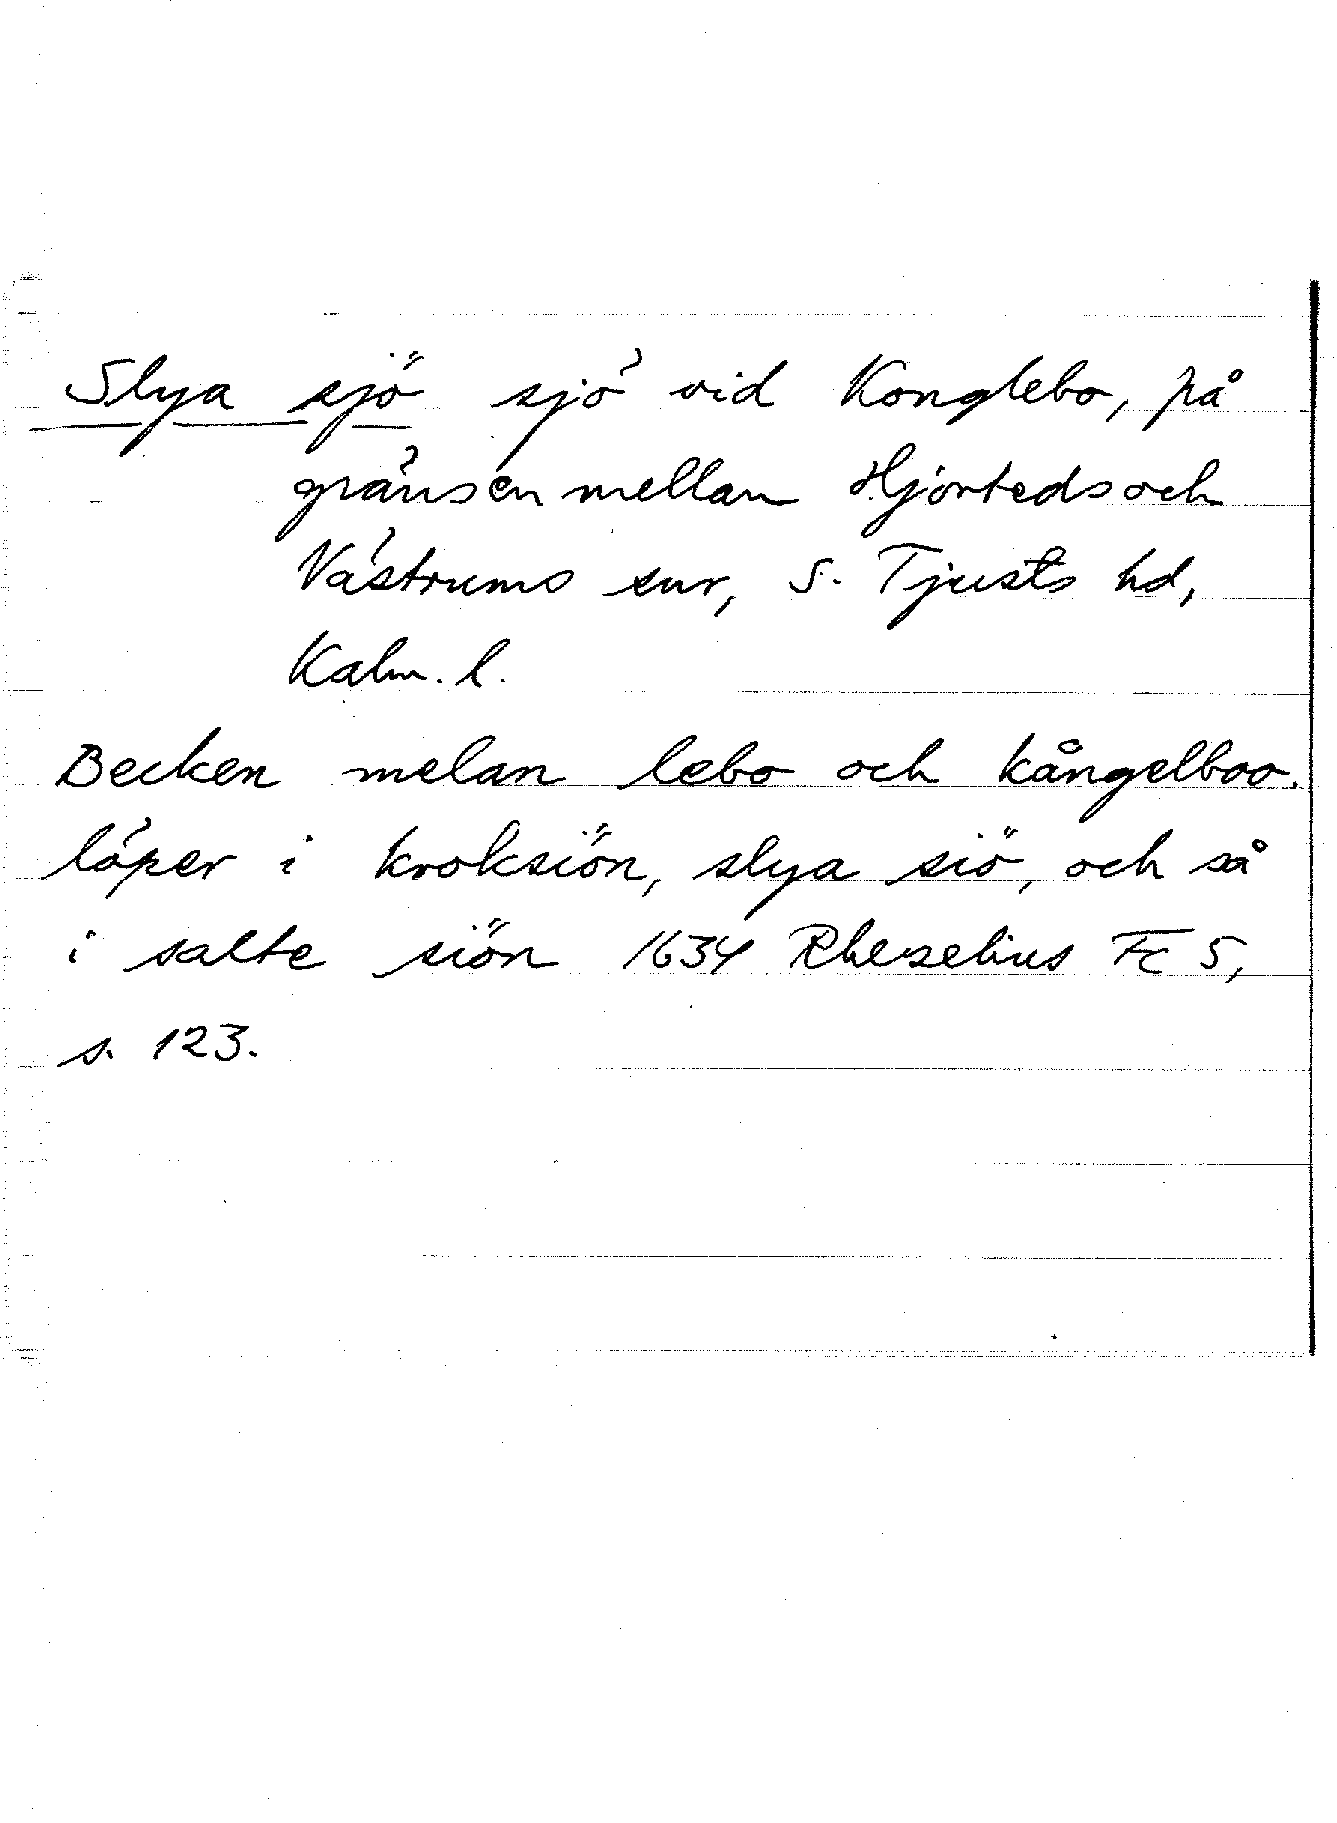 Slya sjö sjö vid Konglebo, på
gränsen mellan Hjorteds och
Västrums snr, S. Tjusts hd,
Kalm. l.
Becken melan lebo och kångelboo.
löper i kroksiön, slya siö, och så
i salte siön 1634 Rhezelius Fc 5,
s. 123.